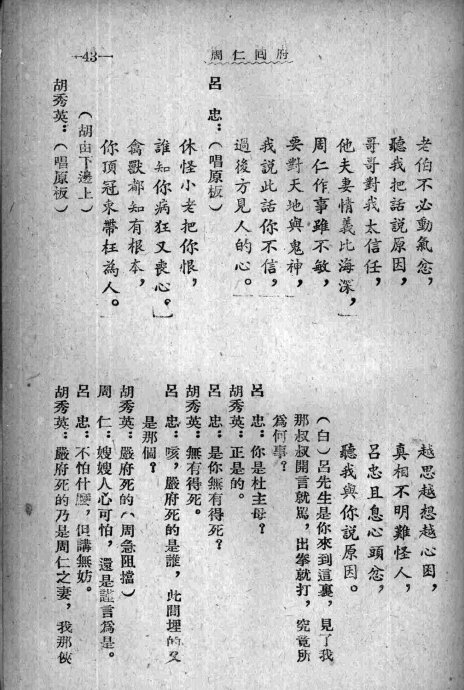 —43—
周仁囘府
老伯不必動氣忿，
聽我把話說原因，
哥哥對我太信任，
他夫妻情義比海深，
周仁作事雖不敏，
要對天地與鬼神，
我說此話你不信，
過後方見人的心。
呂　忠：（唱原板）
休怪小老把你恨，
誰知你病狂又喪心。
禽獸都知有根本，
你頂冠束帶枉為人。
（胡由下邊上）
胡秀英：（唱原板）
越思越想越心困，
真相不明難怪人，
呂忠且息心頭忿，
聽我與你說原因。
（白）呂先生是你來到這裏，見了我
那叔叔開言就罵，出拳就打，究竟所
為何事？
呂　忠：你是杜主母？
胡秀英：正是的。
呂　忠：是你無有得死？
胡秀英：無有得死。
呂　忠：咳，嚴府死的是誰，此間埋的又
是那個？
胡秀英：嚴府死的（周急阻擋）
周　仁：嫂嫂人心可怕，還是謊言為是。
呂　忠：不怕什麼，但講無妨。
胡秀英：嚴府死的乃是周仁之妻，我那俠